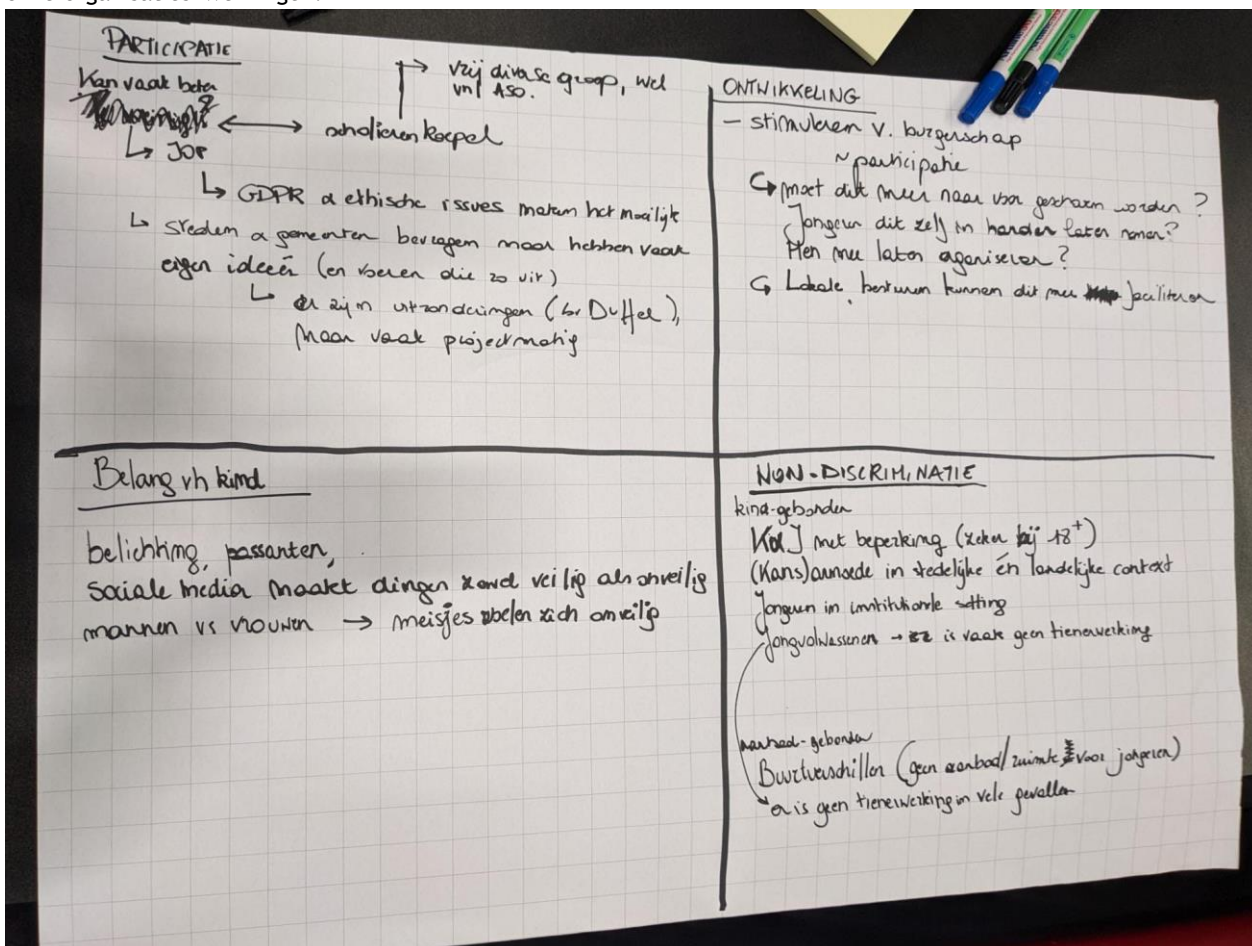 PARTICIPATIE
Kan vaak beter
↳ JOP
↔ scholierenkoepel
→ vrij diverse groep, wel
vnl ASO.
↳ GDPR & ethische issues maken het moeilijk
↳ steden & gemeenten bevragen maar hebben vaak
eigen ideeën (en voeren die zo uit)
↳ er zijn uitzonderingen (bv Duffel),
maar vaak projectmatig
ONTWIKKELING
- stimuleren v. burgerschap
~ participatie
↳ moet dit meer naar voor geschoven worden?
Jongeren dit zelf in handen laten nemen?
Hen mee laten organiseren?
↳ Lokale besturen kunnen dit mee faciliteren
Belang vh kind
belichting, passanten,
sociale media maakt dingen zowel veilig als onveilig
mannen vs vrouwen → meisjes voelen zich onveilig
NON-DISCRIMINATIE
kind-gebonden
K&J met beperking (zeker bij 18+)
(Kans)armoede in stedelijke én landelijke context
Jongeren in institutionele setting
Jongvolwassenen → is vaak geen tienerwerking
aanbod-gebonden
Buurtverschillen (geen aanbod/ruimte voor jongeren)
er is geen tienerwerking in vele gevallen